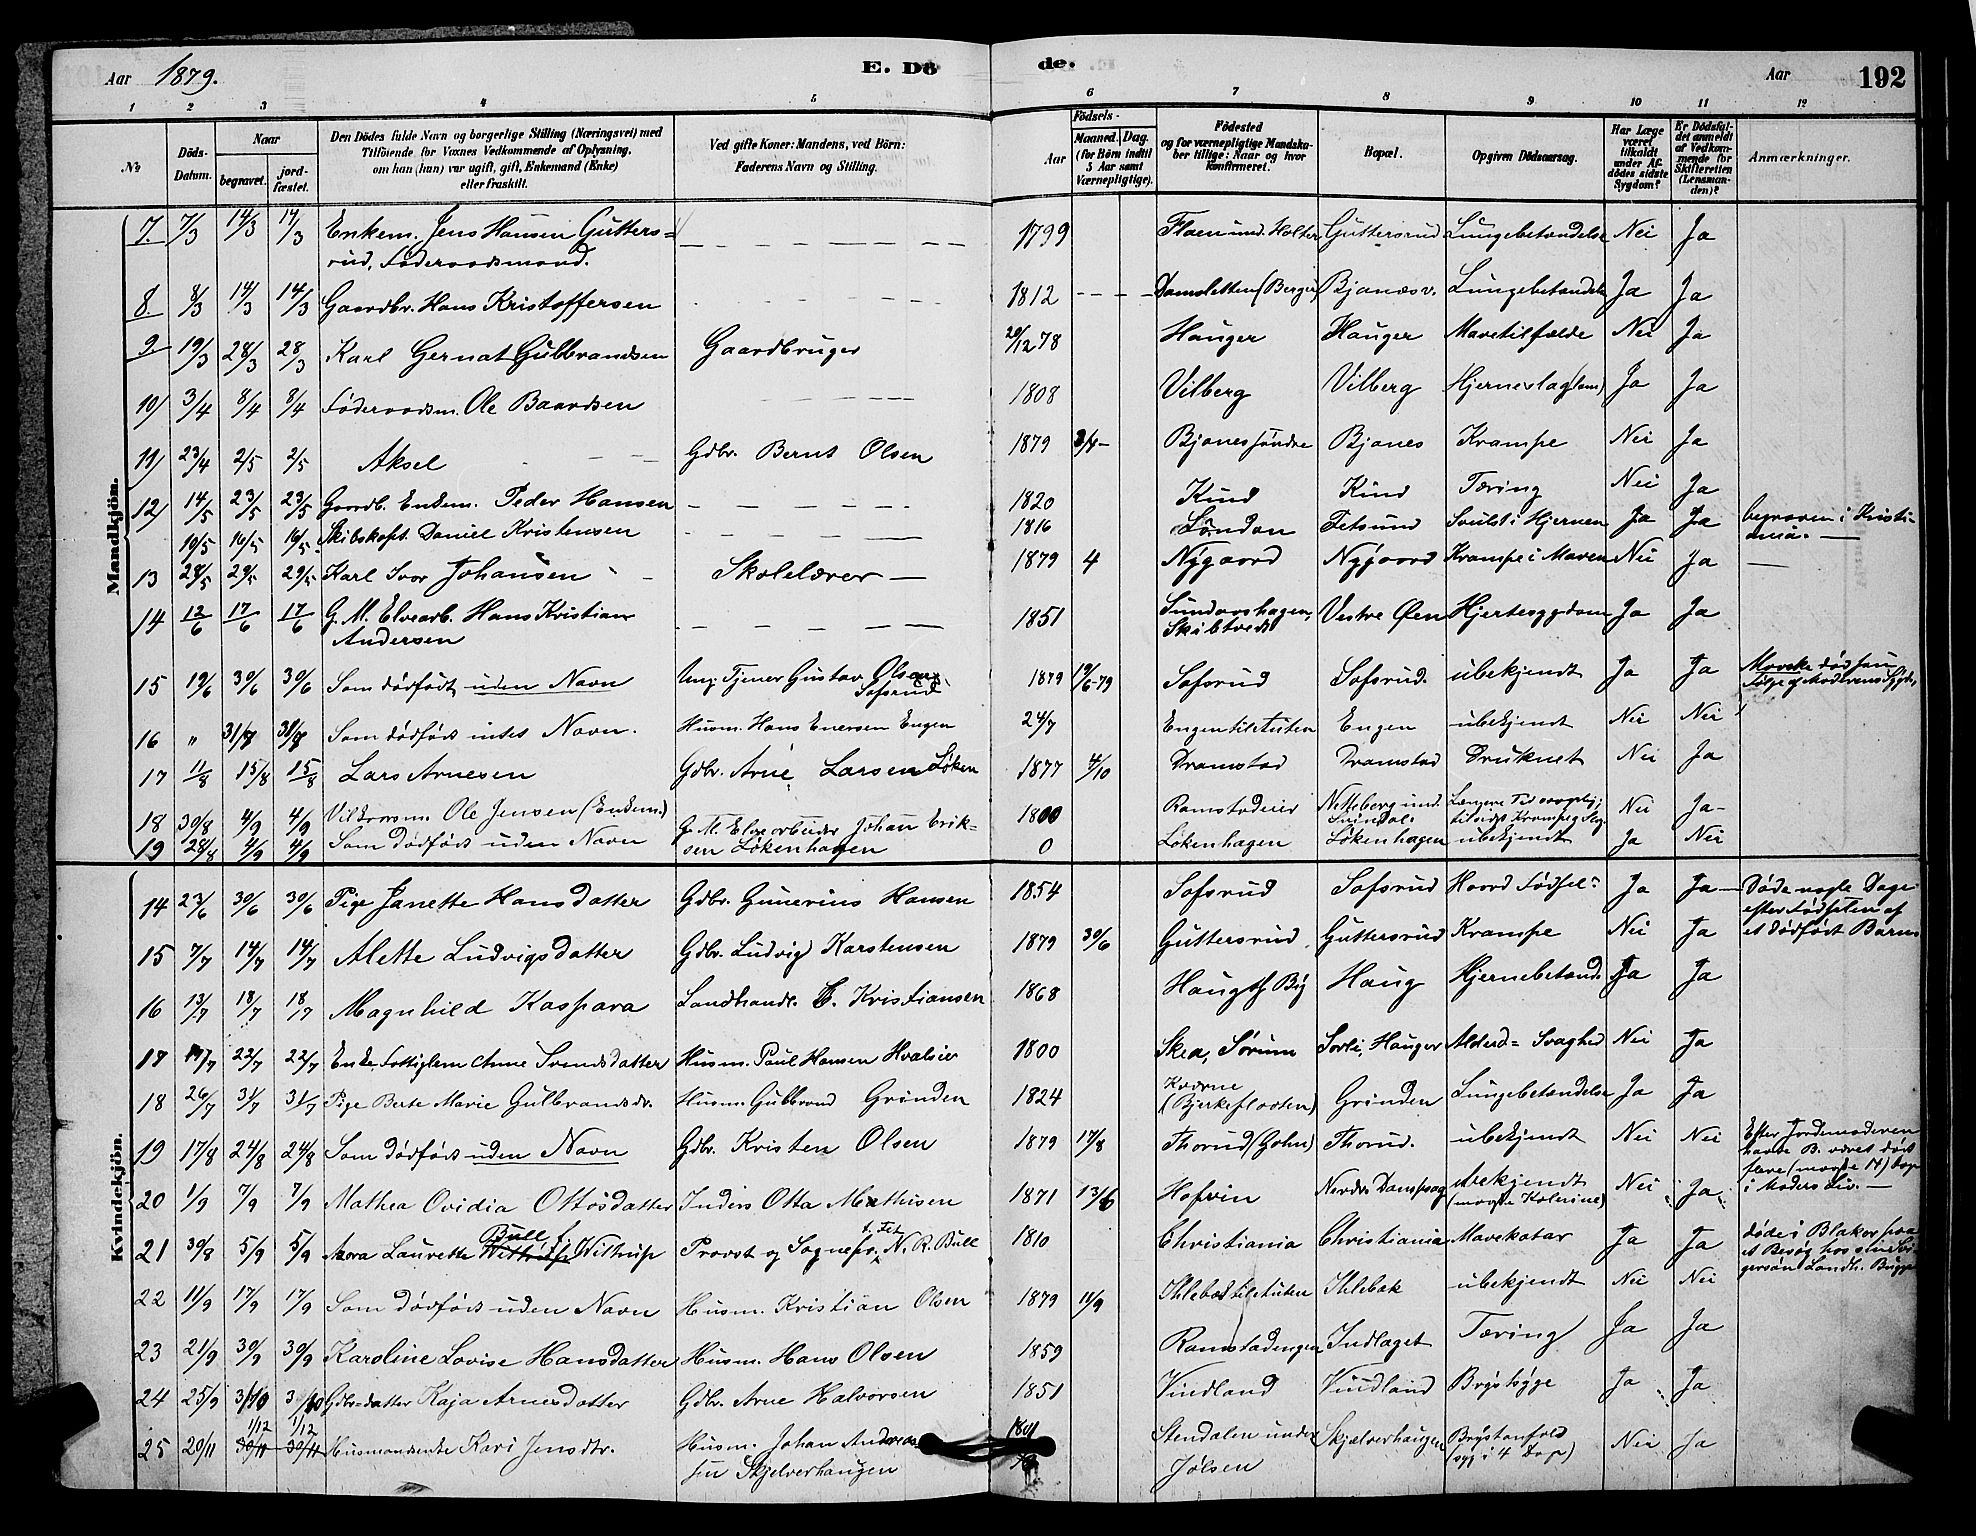 Aar 1879. E. Dö de. Aar 192
1 2 3 4 5 6 7 8 9 10 11 12
№
Döds-Datum.
Naar begravet. jordfæstet.
Den Dödes fulde Navn og borgerlige Stilling (Næringsvei) med Tilföiende for Voxnes Vedkommende af Oplysning, om han (hun) var ugift, gift, Enkemand (Enke) eller fraskilt.
Ved gifte Koner: Mandens, ved Börn: Faderens Navn og Stilling.
Födsels- Aar Maaned. Dag. (for Börn indtil 5 Aar samt Værnepligtige).
Födested og for værnepligtige Mandskaber tillige: Naar og hvor konfirmeret.
Bopæl.
Opgiven Dödsaarsag.
Har Læge været tilkaldt under Afdödes sidste Sygdom?
Er Dödsfaldet anmeldt af Vedkommende for Skifteretten (Lensmanden)?
Anmærkninger.
Mandkjön.
7. 7/3 14/3 14/3 Enkem. Jens Hansen Gutters= 1799 Flaen und. Holter Guttersrud Lungebetændelse Nei Ja
rud, Föderaadsmand.
8. 8/3 14/3 14/3 Gaardbr. Hans Kristoffersen 1812 Damsletten (Berger) Bjanæs v. Lungebetændelse Ja Ja
9 19/3 28/3 28/3 Karl Gernat Gulbrandsen Gaardbruger 20/12 78 Hauger Hauger Mavetilfælde Nei Ja
10/ 3/4 8/4 8/4 Föderaadsm. Ole Baardsen 1808 Vilberg Vilberg Hjerneslag(lam) Ja Ja
11/ 23/4 2/5 2/5 Aksel Gdbr. Bernt Olsen 1879 Bjanes söndre Bjanes Krampe Nei Ja
12/ 14/5 23/5 23/5 Gaardb. Enkem. Peder Hansen 1820 Kind Kind Tæring Nei Ja
10/5 16/5 16/5 Skibskapt. Daniel Kristensen 1816 London Fetsund Svulst i Hjernen Ja Ja begraven i Kristi-
ania.
13 28/5 29/5 29/5 Karl Ivar Johansen Skolelærer 1879 4 Nygaard Nygaard Krampe i Maven Nei Ja
14 12/6 17/6 17/6 G. M. Elvearb. Hans Kristian 1851 Sundarshagen, Vestre Øen Hjertesygdom Ja Ja
Andersen Skibtvedt
15 19/6 30/6 30/6 Som dödfödt uden Navn Ung. Tjener Gustav Olsen 1879 19/6-79 Sofsrud Sofsrud. ubekjendt Ja Ja Maaske död som
Sofsrud Fölge af Moderens Sygd.
16 " 31/7 31/7 Som dödfödt intet Navn. Husm. Hans Enersen Engen 24/7 Engen til Tuten Engen ubekjendt Nei Nei
17 11/8 15/8 15/8 Lars Arnesen Gdbr. Arne Larsen Løken 1877 4/10 Dramstad Dramstad Druknet Nei Ja
18 30/8 4/9 4/9 Vilkaarsm. Ole Jensen (Enkem.) 1800 Ramstadeier Netteberg und. Længere Tid Nei Ja
til sidst Krampe
19 28/8 4/9 4/9 Som dödfödt uden Navn G. M. Elvearbeider Johan Erik- 0 Løkenhagen Løkenhagen ubekjendt Ja Nei
sen Løkenhagen
Kvindekjön.
14 23/6 30/6 30/6 Pige Janette Hansdatter Gdbr. Gunerius Hansen 1854 Sofsrud Sofsrud Haard Födsel Ja Ja Döde nogle Dage
efter Födselen af
et dödfödt Barn
15 7/7 14/7 14/7 Alette Ludvigsdatter Gdbr. Ludvig Karstensen 1879 30/6 Guttersrud Guttersrud Krampe Nei Ja
16 13/7 18/7 18/7 Magnhild Kaspara Landhandl. C. Kristiansen 1868 Haug Haug Hjernebetænd. Ja Ja
17 22/7 22/7 Enke, Fattiglem Anne Svendsdatter Husm. Paul Hansen Hvalseie 1800 Skea, Sörum Sorli, Hauger Alderd= Svaghed Nei Ja
18 26/7 31/7 31/7 Pige Berte Marie Gulbrandsdr. Husm. Gulbrand Grinden 1824 Kværne Grinden Lungebetændelse Ja Ja
(Bjerkeflaaten)
19 17/8 24/8 24/8 Som dödfödt uden Navn Gdbr. Kristen Olsen 1879 17/8 Thorud Thorud. ubekjendt Nei Nei Efter Jordemoderen
havde B. været dödt
flere (maaske 14) Dage
i Moders Liv.
20 1/9 7/9 7/9 Mathea Ovidia Ottosdatter Inders. Otto Mathisen 1871 13/6 Hofvin Nordre Dampsag ubekjendt Nei Ja
(maaske Kolerine)
21 30/8 5/9 5/9 Mora Laurette Bull f. Wiltrup Provst og Sognepr. t. Fet N. R. Bull 1810 Christiania Christiania Mavekatar Ja Ja Döde i Blaker paa
et Besög hos sine
22 11/9 17/9 17/9 Som dödfödt uden Navn Husm. Kristian Olsen 1879 11/9 Ihlebæk til Tuten Ihlebæk ubekjendt Nei Nei
23 21/9 30/9 30/9 Karoline Lovise Hansdatter Husm. Hans Olsen 1859 Ramstadengen Indlaget Tæring Ja Ja
24 25/9 3/10 3/10 Gdbr-datter Kaja Arnesdatter Gdbr. Arne Halvorsen 1851 Vindland Vindland Brystsyge Ja Ja
1/12 1/12
25 20/11 30/11 30/11 Husmandsenke Kari Jensdtr. Husm. Johan Andrea 1801 Stendalen under Skjælverhaugen Brystanfald Nei Ja
sen Skjelverhaugen Jølsen (syg i 4 Dage)